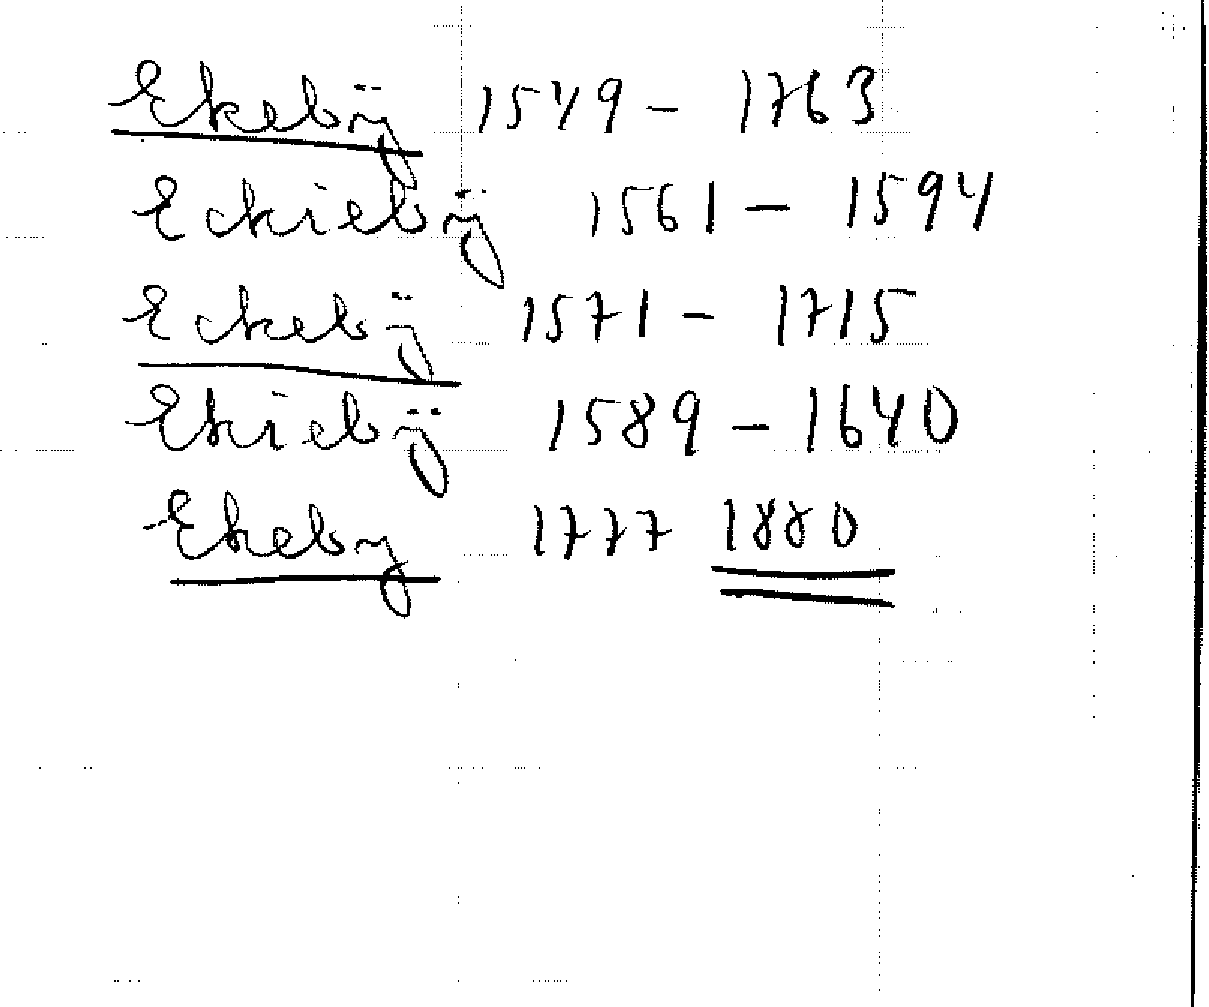 Ekebÿ 1549 - 1763
Eckiebÿ 1561 - 1594
Eckebÿ 1571 - 1715
Ekiebÿ 1589 - 1640
Ekeby 1777 1880